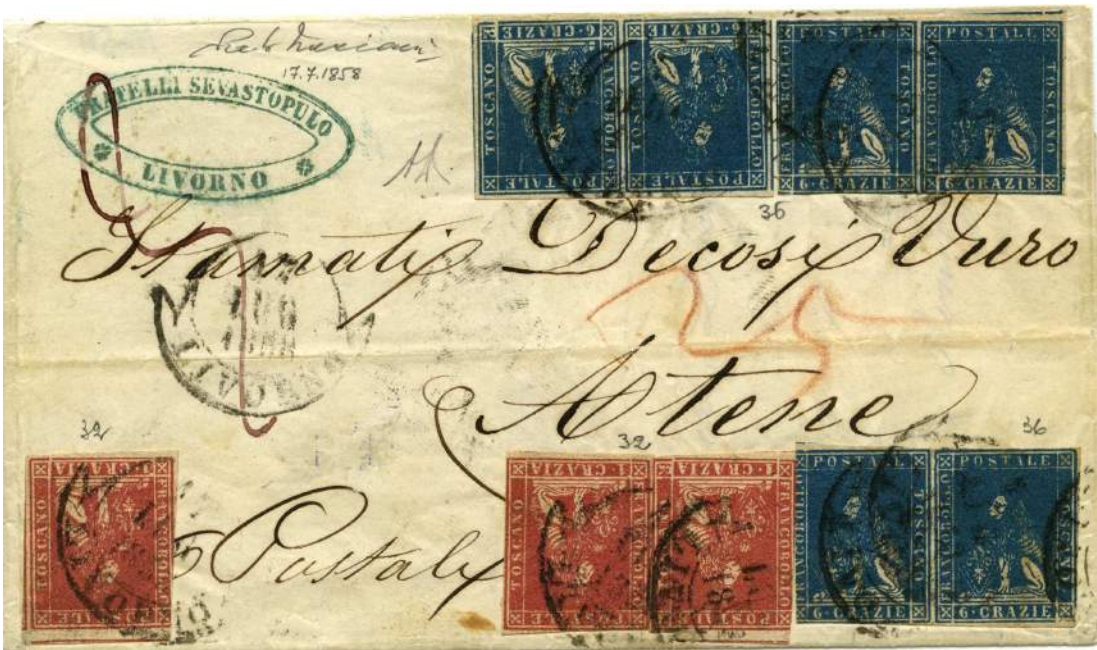 17.7.1858
FRATELLI SEVASTOPULO
LIVORNO
FRANCOBOLLO POSTALE TOSCANO
6·CRAZIE
FRANCOBOLLO POSTALE TOSCANO
6·CRAZIE
FRANCOBOLLO POSTALE TOSCANO
6·CRAZIE
FRANCOBOLLO POSTALE TOSCANO
6·CRAZIE
36
Stamati Decosi Vuro
25
LUG
1858
Atene
32
32
36
FRANCOBOLLO POSTALE TOSCANO
1·CRAZIA
Postale
FRANCOBOLLO POSTALE TOSCANO
1·CRAZIA
FRANCOBOLLO POSTALE TOSCANO
1·CRAZIA
FRANCOBOLLO POSTALE TOSCANO
6·CRAZIE
FRANCOBOLLO POSTALE TOSCANO
6·CRAZIE